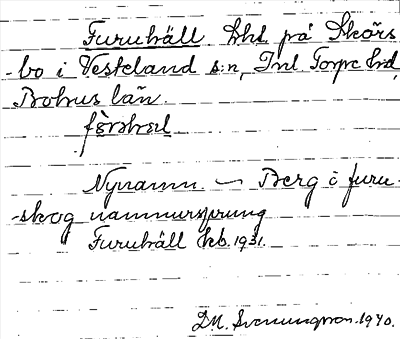 Furuhäll lht på Skörs
-bo i Vesteland s:n, Inl Torpe hd,
Bohus län.
Nynamn — Berg o furu-
-skog namnursprung
Furuhäll kb. 1931.
D.M. Svenungson. 1940.